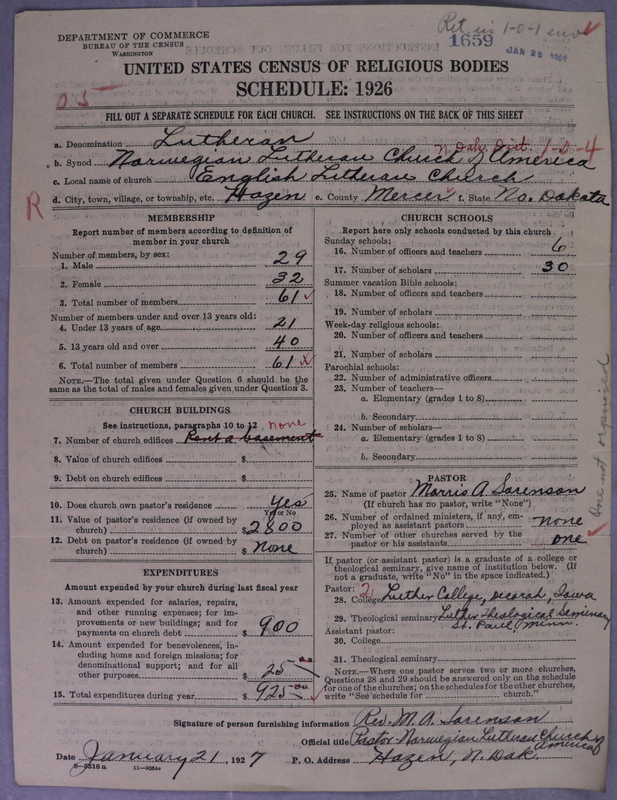 Ret in 1-0-1
DEPARTMENT OF COMMERCE
BUREAU OF THE CENSUS
WASHINGTON
1659
JAN 25
UNITED STATES CENSUS OF RELIGIOUS BODIES
SCHEDULE: 1926
O S
FILL OUT A SEPARATE SCHEDULE FOR EACH CHURCH. SEE INSTRUCTIONS ON THE BACK OF THIS SHEET
a. Denomination Lutheran
N. Dak. Dist. 1-0-4
b. Synod Norwegian Lutheran Church of America
c. Local name of church English Lutheran Church
R
d. City, town, village, or township, etc. Hazen e. County Mercer f. State No. Dakota
MEMBERSHIP
Report number of members according to definition of
member in your church
Number of members, by sex:
1. Male 29
2. Female 32
3. Total number of members 61
Number of members under and over 13 years old:
4. Under 13 years of age 21
5. 13 years old and over 40
6. Total number of members 61
NOTE.—The total given under Question 6 should be the
same as the total of males and females given under Question 3.
CHURCH BUILDINGS
See instructions, paragraphs 10 to 12
none
7. Number of church edifices Rent a basement
8. Value of church edifices $
9. Debt on church edifices $
10. Does church own pastor's residence Yes
Yes or No
11. Value of pastor's residence (if owned by
church) $ 2800
12. Debt on pastor's residence (if owned by
church) $ None
EXPENDITURES
Amount expended by your church during last fiscal year
13. Amount expended for salaries, repairs,
and other running expenses; for im-
provements or new buildings; and for
payments on church debt $ 900
14. Amount expended for benevolences, in-
cluding home and foreign missions; for
denominational support; and for all
other purposes $ 25 00
15. Total expenditures during year $ 925 00
CHURCH SCHOOLS
Report here only schools conducted by this church
Sunday schools:
16. Number of officers and teachers 6
17. Number of scholars 30
Summer vacation Bible schools:
18. Number of officers and teachers
19. Number of scholars
Week-day religious schools:
20. Number of officers and teachers
21. Number of scholars
Parochial schools:
22. Number of administrative officers
23. Number of teachers—
a. Elementary (grades 1 to 8)
b. Secondary
24. Number of scholars—
a. Elementary (grades 1 to 8)
b. Secondary
PASTOR
25. Name of pastor Morris A Sorenson
(If church has no pastor, write "None")
26. Number of ordained ministers, if any, em-
ployed as assistant pastors none
27. Number of other churches served by the
pastor or his assistants one
One not organized
If pastor (or assistant pastor) is a graduate of a college or
theological seminary, give name of institution below. (If
not a graduate, write "No" in the space indicated.)
Pastor: 2
28. College Luther College, Decorah, Iowa
29. Theological seminary Luther Theological Seminary
St. Paul, Minn.
Assistant pastor:
30. College
31. Theological seminary
NOTE.—Where one pastor serves two or more churches,
Questions 28 and 29 should be answered only on the schedule
for one of the churches; on the schedules for the other churches,
write "See schedule for church."
Signature of person furnishing information Rev. M. A. Sorenson
Official title Pastor-Norwegian Lutheran Church of
America
Date January 21, 1927 P. O. Address Hazen, N. Dak.
8-5518a 11-9554